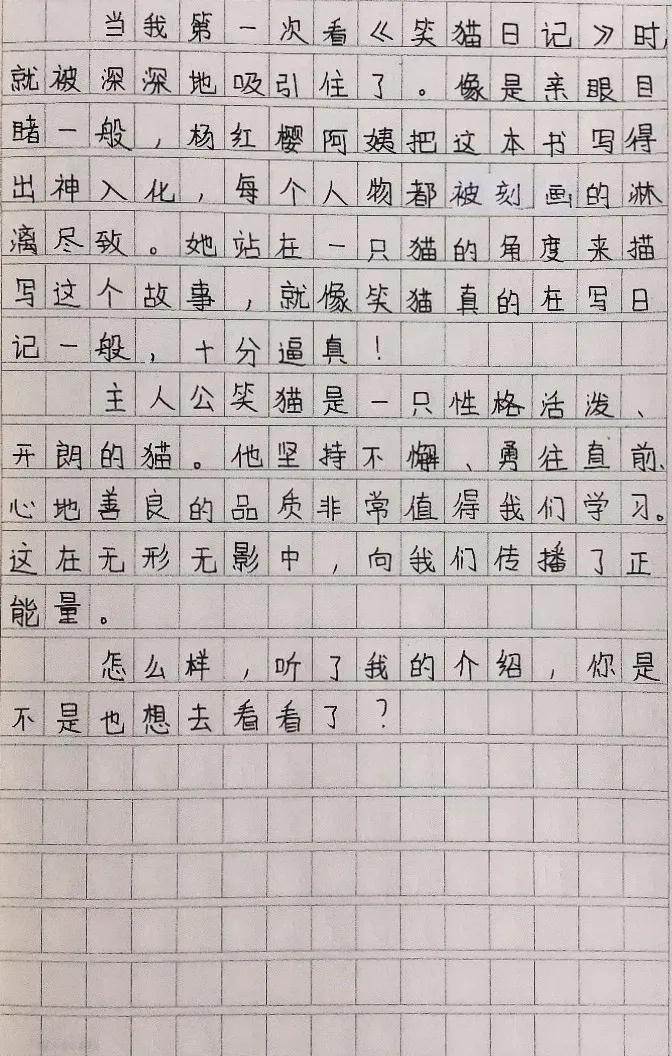 当我第一次看《笑猫日记》时,
就被深深地吸引住了。像是亲眼目
睹一般，杨红樱阿姨把这本书写得
出神入化，每个人物都被刻画的淋
漓尽致。她站在一只猫的角度来描
写这个故事，就像笑猫真的在写日
记一般，十分逼真！
主人公笑猫是一只性格活泼、
开朗的猫。他坚持不懈、勇往直前、
心地善良的品质非常值得我们学习。
这在无形无影中，向我们传播了正
能量。
怎么样，听了我的介绍，你是
不是也想去看看了？